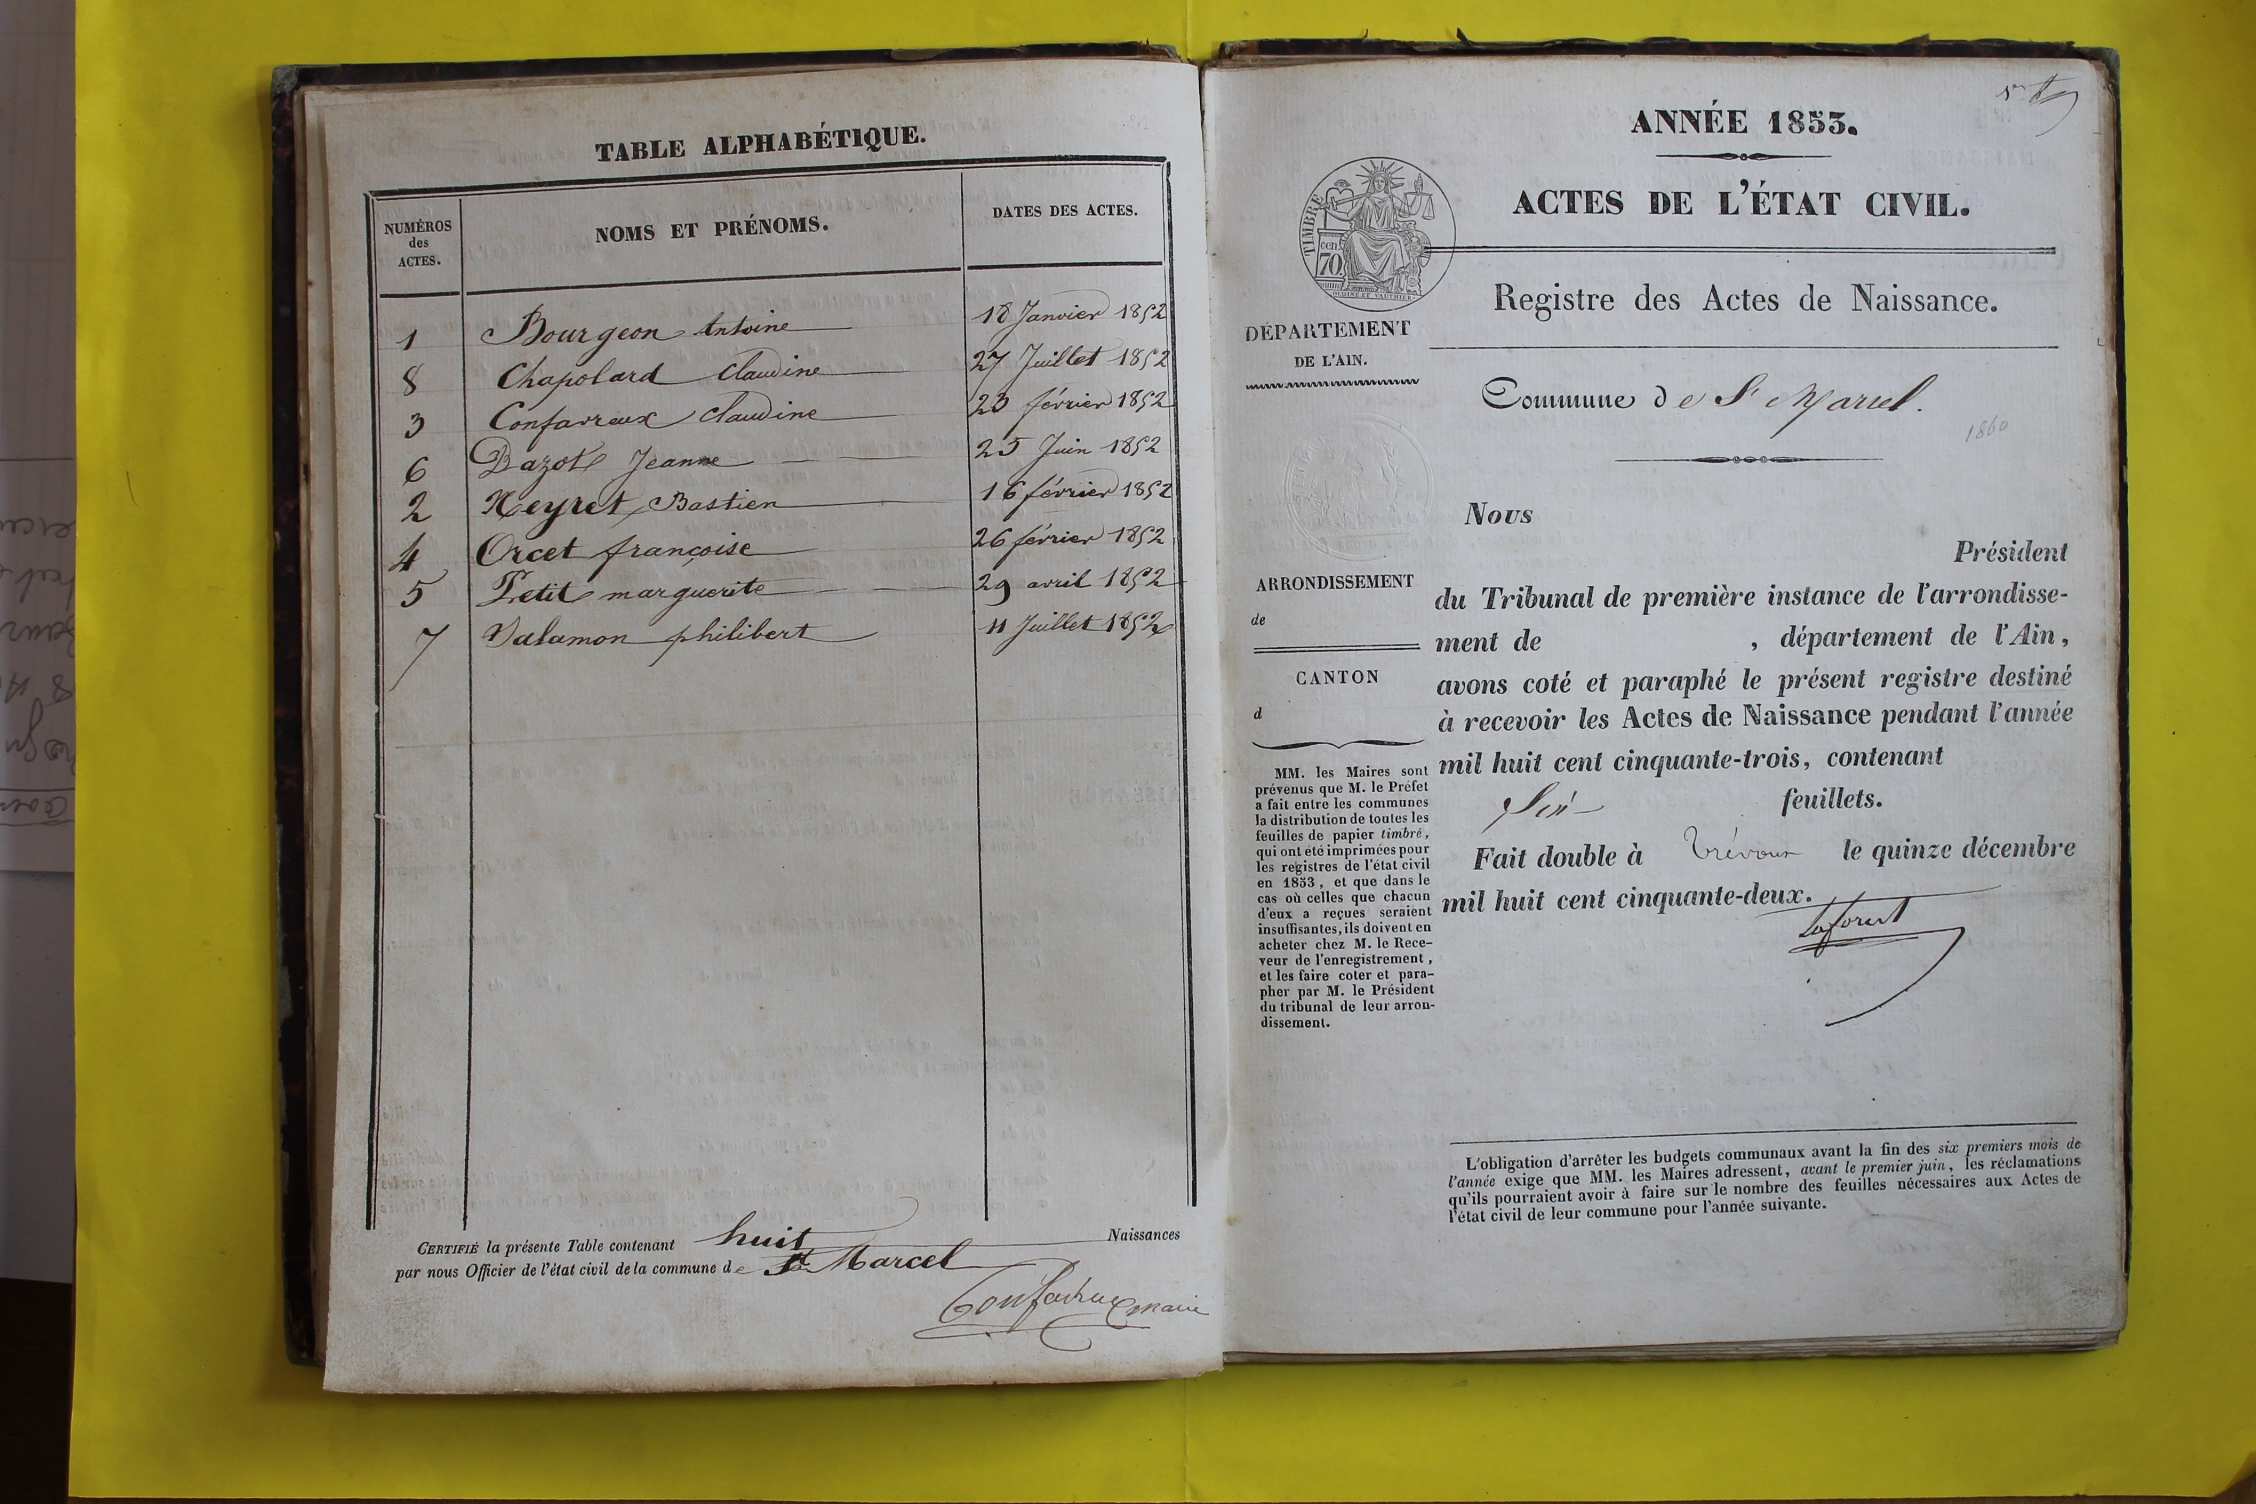 TABLE ALPHABÉTIQUE.
NUMÉROS
des
ACTES.
NOMS ET PRÉNOMS.
DATES DES ACTES.
1 Bourgeon Antoine 18 Janvier 1852
8 Chapolard Claudine 27 Juillet 1852
3 Confavreux Claudine 23 février 1852
6 Dazot Jeanne 25 Juin 1852
2 Neyret Bastien 16 février 1852
4 Orcet françoise 26 février 1852
5 Petit marguerite 29 avril 1852
7 Salamon philibert 11 Juillet 1852
CERTIFIÉ la présente Table contenant huit Naissances
par nous Officier de l'état civil de la commune de St Marcel
maire
ANNÉE 1853.
ACTES DE L'ÉTAT CIVIL.
TIMBRE
70
cen.
Registre des Actes de Naissance.
DÉPARTEMENT
DE L'AIN.
Commune de St Marcel.
1860
Nous
Président
du Tribunal de première instance de l'arrondisse-
ment de , département de l'Ain,
avons coté et paraphé le présent registre destiné
à recevoir les Actes de Naissance pendant l'année
mil huit cent cinquante-trois, contenant
Six feuillets.
Fait double à Trévoux le quinze décembre
mil huit cent cinquante-deux.
ARRONDISSEMENT
de
CANTON
d
MM. les Maires sont
prévenus que M. le Préfet
a fait entre les communes
la distribution de toutes les
feuilles de papier timbré,
qui ont été imprimées pour
les registres de l'état civil
en 1853, et que dans le
cas où celles que chacun
d'eux a reçues seraient
insuffisantes, ils doivent en
acheter chez M. le Rece-
veur de l'enregistrement,
et les faire coter et para-
pher par M. le Président
du tribunal de leur arron-
dissement.
L'obligation d'arrêter les budgets communaux avant la fin des six premiers mois de
l'année exige que MM. les Maires adressent, avant le premier juin, les réclamations
qu'ils pourraient avoir à faire sur le nombre des feuilles nécessaires aux Actes de
l'état civil de leur commune pour l'année suivante.